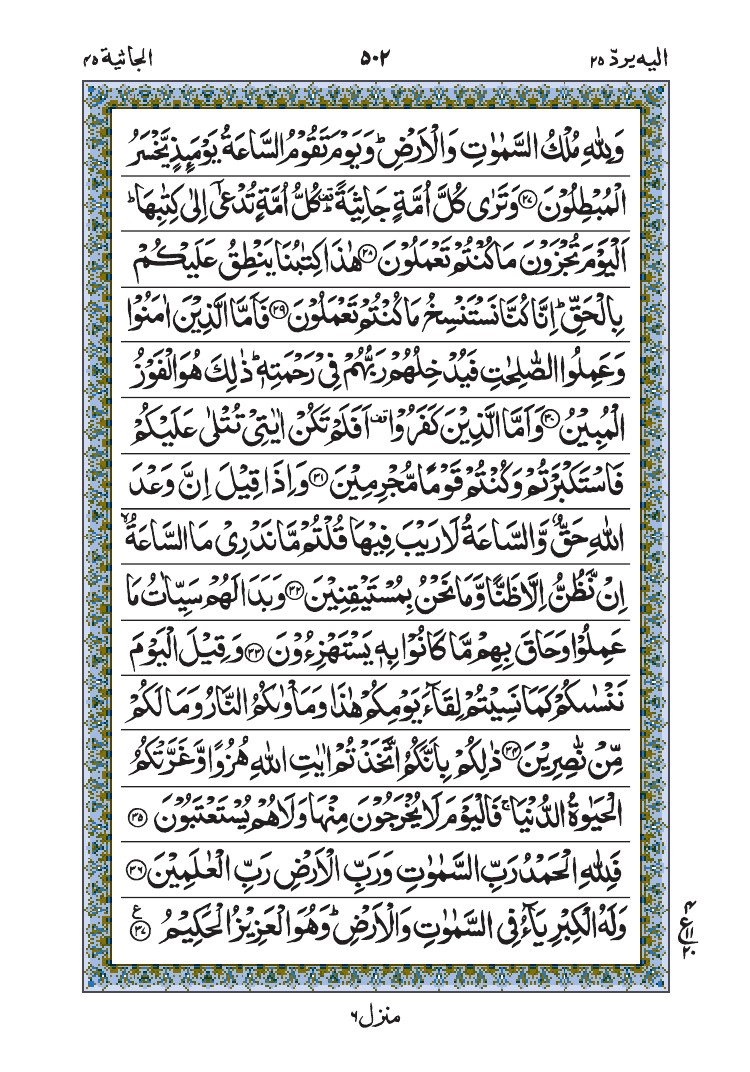 الیه یردّ ۲۵
۵۰۲
الجاثیة ۴۵
وَلِلّٰهِ مُلْكُ السَّمٰوٰتِ وَالْاَرْضِ ؕ وَيَوْمَ تَقُوْمُ السَّاعَةُ يَوْمَىِٕذٍ يَّخْسَرُ
الْمُبْطِلُوْنَ ۲۷ وَتَرٰى كُلَّ اُمَّةٍ جَاثِيَةً ۫ كُلُّ اُمَّةٍ تُدْعٰۤى اِلٰى كِتٰبِهَا ؕ
اَلْيَوْمَ تُجْزَوْنَ مَا كُنْتُمْ تَعْمَلُوْنَ ۲۸ هٰذَا كِتٰبُنَا يَنْطِقُ عَلَيْكُمْ
بِالْحَقِّ ؕ اِنَّا كُنَّا نَسْتَنْسِخُ مَا كُنْتُمْ تَعْمَلُوْنَ ۲۹ فَاَمَّا الَّذِيْنَ اٰمَنُوْا
وَعَمِلُوا الصّٰلِحٰتِ فَيُدْخِلُهُمْ رَبُّهُمْ فِيْ رَحْمَتِهٖ ؕ ذٰلِكَ هُوَ الْفَوْزُ
الْمُبِيْنُ ۳۰ وَاَمَّا الَّذِيْنَ كَفَرُوْا ۫ اَفَلَمْ تَكُنْ اٰيٰتِيْ تُتْلٰى عَلَيْكُمْ
فَاسْتَكْبَرْتُمْ وَكُنْتُمْ قَوْمًا مُّجْرِمِيْنَ ۳۱ وَاِذَا قِيْلَ اِنَّ وَعْدَ
اللّٰهِ حَقٌّ وَّالسَّاعَةُ لَا رَيْبَ فِيْهَا قُلْتُمْ مَّا نَدْرِيْ مَا السَّاعَةُ ۙ
اِنْ نَّظُنُّ اِلَّا ظَنًّا وَّمَا نَحْنُ بِمُسْتَيْقِنِيْنَ ۳۲ وَبَدَا لَهُمْ سَيِّاٰتُ مَا
عَمِلُوْا وَحَاقَ بِهِمْ مَّا كَانُوْا بِهٖ يَسْتَهْزِءُوْنَ ۳۳ وَقِيْلَ الْيَوْمَ
نَنْسٰىكُمْ كَمَا نَسِيْتُمْ لِقَآءَ يَوْمِكُمْ هٰذَا وَمَاْوٰىكُمُ النَّارُ وَمَا لَكُمْ
مِّنْ نّٰصِرِيْنَ ۳۴ ذٰلِكُمْ بِاَنَّكُمُ اتَّخَذْتُمْ اٰيٰتِ اللّٰهِ هُزُوًا وَّغَرَّتْكُمُ
الْحَيٰوةُ الدُّنْيَا ۚ فَالْيَوْمَ لَا يُخْرَجُوْنَ مِنْهَا وَلَا هُمْ يُسْتَعْتَبُوْنَ ۳۵
فَلِلّٰهِ الْحَمْدُ رَبِّ السَّمٰوٰتِ وَرَبِّ الْاَرْضِ رَبِّ الْعٰلَمِيْنَ ۳۶
وَلَهُ الْكِبْرِيَآءُ فِي السَّمٰوٰتِ وَالْاَرْضِ ؕ وَهُوَ الْعَزِيْزُ الْحَكِيْمُ ۳۷ ع
۴
ع ۱۱
۲۰
منزل ۶